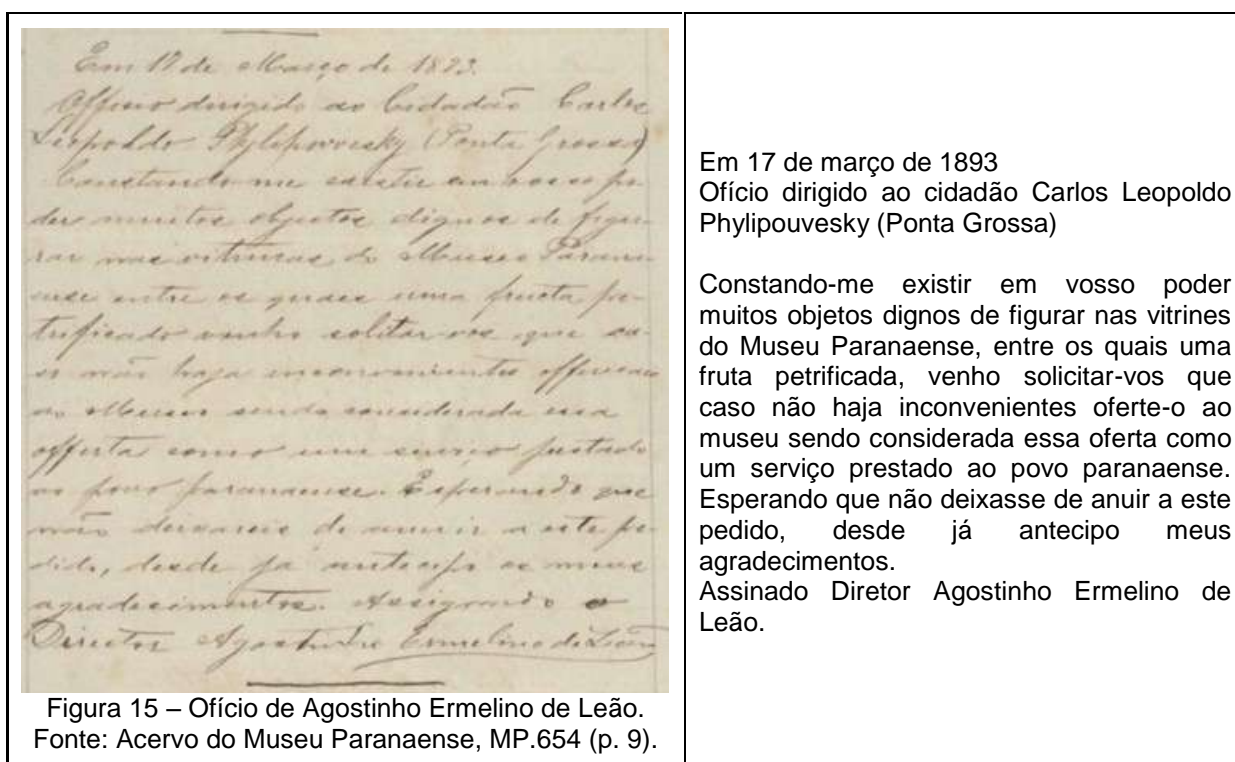 Em 17 de Março de 1893.
Officio dirigido ao Cidadão Carlos
Leopoldo Phylipowesky (Ponta Grossa)
Constando-me existir em vosso po-
der muitos objectos dignos de figu-
rar nas vitrinas do Museu Parana-
ense entre os quaes uma fructa pe-
trificada venho solitar-vos que ca-
so não haja inconvenientes
ao Museu sendo considerada essa
offerta como um serviço prestado
ao povo paranaense. Esperando que
não deixareis de annuir a este pe-
dido, desde já antecipo os meus
agradecimentos. Assignado o
Director Agostinho Ermelino de Leão
Figura 15 – Ofício de Agostinho Ermelino de Leão.
Fonte: Acervo do Museu Paranaense, MP.654 (p. 9).
Em 17 de março de 1893
Ofício dirigido ao cidadão Carlos Leopoldo
Phylipouvesky (Ponta Grossa)
Constando-me existir em vosso poder
muitos objetos dignos de figurar nas vitrines
do Museu Paranaense, entre os quais uma
fruta petrificada, venho solicitar-vos que
caso não haja inconvenientes oferte-o ao
museu sendo considerada essa oferta como
um serviço prestado ao povo paranaense.
Esperando que não deixasse de anuir a este
pedido, desde já antecipo meus
agradecimentos.
Assinado Diretor Agostinho Ermelino de
Leão.